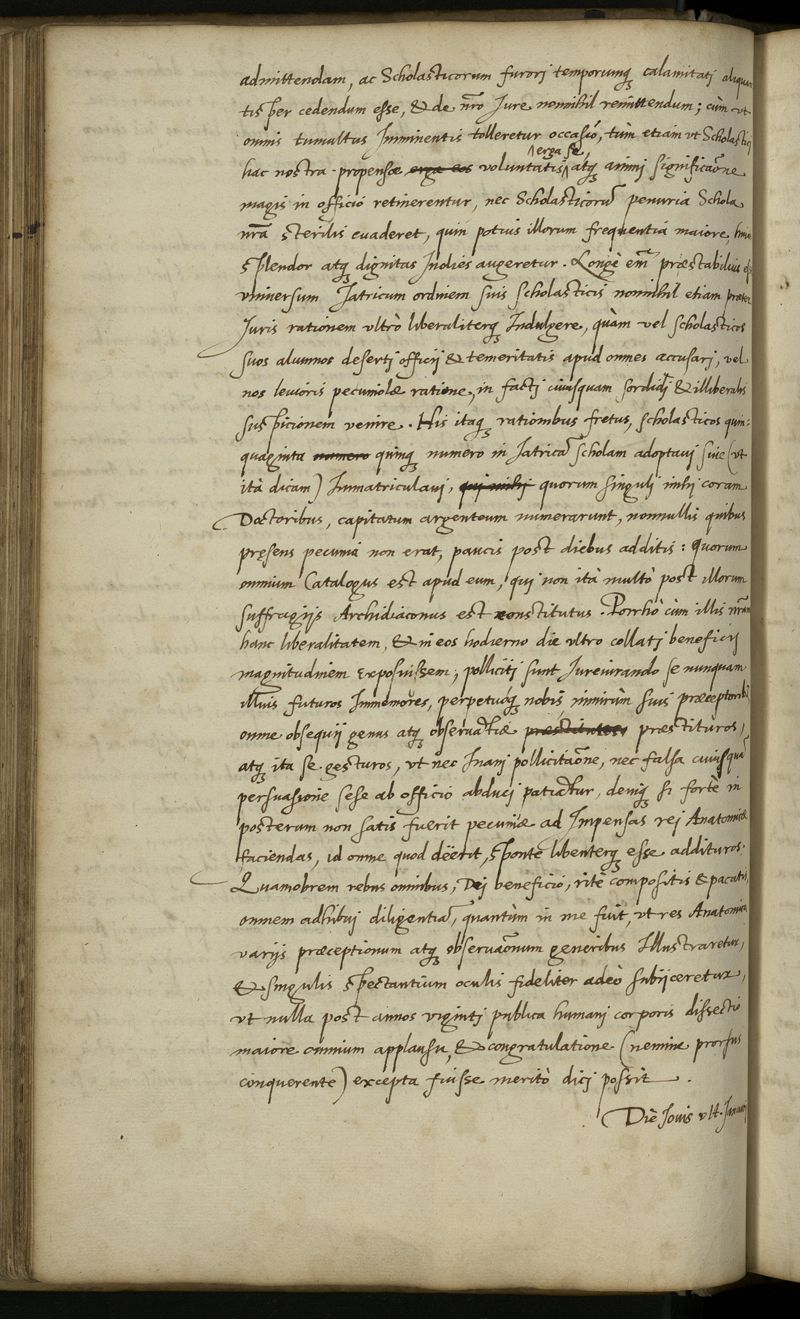 admittendam, ac Scholasticorum furorj temporumq; calamitatj aliquan
tisper cedendum esse, & de nr̃o Jure nonnihil remittendum; cùm vt
omnis tumultus Imminentis tolleretur occasio, tùm etiam vt Scholastici
erga se,
hac nostra propensæ erga eos voluntatis atq; animi significaõne
magis in officio retinerentur, nec Scholasticorũ penuria Schola
nr̃a sterilis euaderet, quin potius illorum frequentia maiore, huius
splendor atq; dignitas Indies augeretur. Longè em̃ præstabilius est
vniuersum Jatricum ordinem suis scholasticis nonnihil etiam præter
Juris rationem vltrò liberaliterq; Indulgere, quàm vel scholasticos
suos alumnos desertj officij & temeritatis apud omnes accusarj, vel
nos leuioris pecuniolæ ratione, in factj cuiusquam sordidj & illiberalis
suspicionem venire. His itaq; rationibus fretus, scholasticos quin:
quaginta numero quinq; numero in Jatricã scholam adoptauj siue (vt
ità dicam) Immatriculauj, qui mihi quorum singulj mihj coram
Doctoribus, capitatum argenteum numerarunt, nonnullis quibus
præsens pecunia non erat, paucis post diebus additis: quorum
omnium Catalogus est apud eum, quj non ità multò post illorum
suffragijs Archidiaconus est constitutus. Porrhò cùm illis nr̃am
hanc liberalitatem, & in eos hodierno die vltro collatj beneficij
magnitudinem exposuissem, pollicitj sunt Jureiurando se nunquam
illius futuros Immemores, perpetuoq; nobis nimirùm suis præceptoribus
omne obsequij genus atq; obseruãtiæ præstituros præstituros,
atq; ita se gesturos, vt nec Inanj pollicitaõne, nec falsa cuiusquã
persuasione sese ab officio abducj patiãtur, deniq; si fortè in
posterum non satis fuerit pecuniæ ad Impensas rej Anatomicæ
faciendas, id omne quod deerit, sponte libenterq; esse addituros.
Quamobrem rebus omnibus, Dej beneficio, ritè compositis & pacatis,
omnem adhibuj diligentiã, quantùm in me fuit, vt res Anatomica
varijs præceptionum atq; obseruaõnum generibus Illustraretur,
& singulis spectantium oculis fideliter adeò subijceretur,
vt nulla post annos vigintj publica humanj corporis dissectio
maiore omnium applausu, & congratulatione (nemine prorsus
conquerente) excepta fuisse meritò dicj possit.
Die Jouis vlt. Januarij